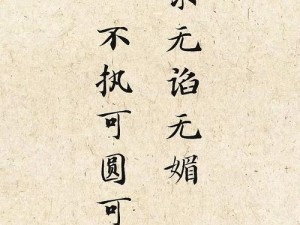 无谄无媚
不执可圆可